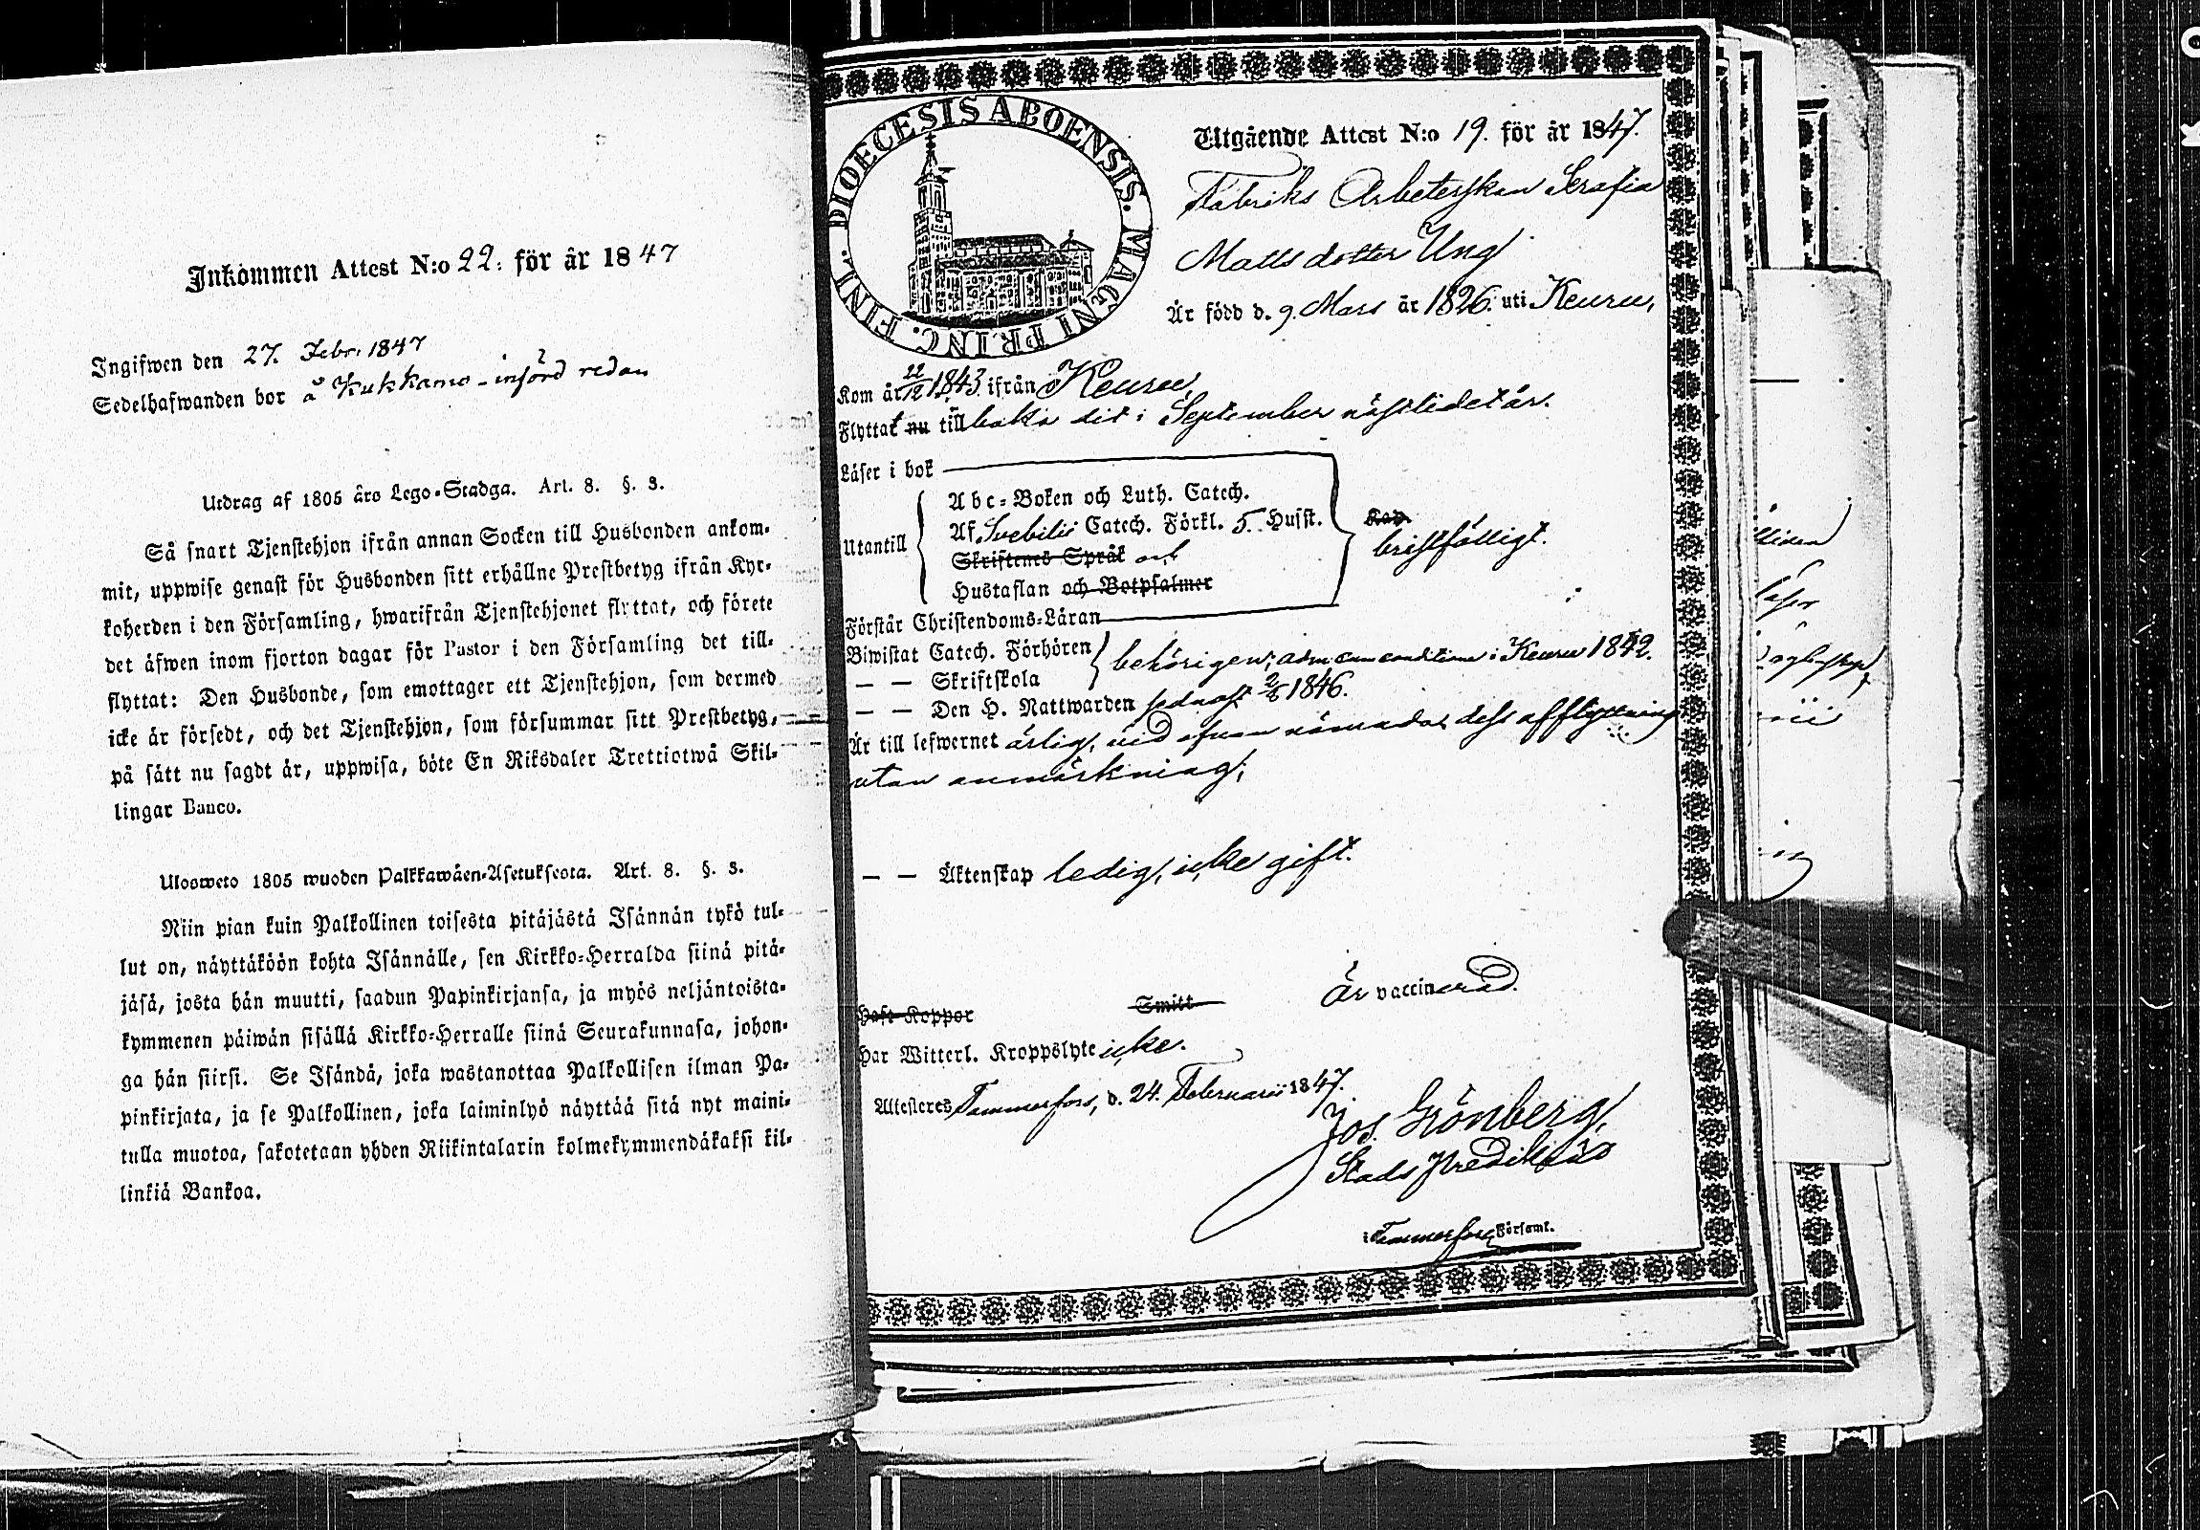 Inkommen Attest N:o 22: för år 1847
Ingifwen den 27. Febr. 1847
Sedelhafwanden bor å Kukkamo - införd redan
Utdrag af 1805 års Lego-Stadga. Art. 8. §. 3.
Så snart Tjenstehjon ifrån annan Socken till Husbonden ankom-
mit, uppwise genast för Husbonden sitt erhållne Prestbetyg ifrån Kyr-
koherden i den Församling, hwarifrån Tjenstehjonet flyttat, och förete
det äfwen inom fjorton dagar för Pastor i den Församling det till-
flyttat: Den Husbonde, som emottager ett Tjenstehjon, som dermed
icke är försedt, och det Tjenstehjon, som försummar sitt Prestbetyg,
på sätt nu sagdt är, uppwisa, böte En Riksdaler Trettiotwå Skil-
lingar Banco.
Ulosweto 1805 wuoden Palkkawäen-Asetuksesta. Art. 8. §. 3.
Niin pian kuin Palkollinen toisesta pitäjästä Isännän tykö tul-
lut on, näyttäköön kohta Isännälle, sen Kirkko-Herralda siinä pitä-
jäsä, josta hän muutti, saadun Papinkirjansa, ja myös neljäntoista-
kymmenen päiwän sisällä Kirkko-Herralle siinä Seurakunnasa, johon-
ga hän siirsi. Se Isändä, joka wastanottaa Palkollisen ilman Pa-
pinkirjata, ja se Palkollinen, joka laiminlyö näyttää sitä nyt maini-
tulla muotoa, sakotetaan yhden Riikintalarin kolmekymmendäkaksi kil-
linkiä Bankoa.
DIOECESIS ABOENSIS. MAGNI PRINC. FINL.
Utgående Attest N:o 19. för år 1847.
Fabriks Arbeterskan Serafia
Mattsdotter Ung
Är född d. 9. Mars år 1826. uti Keuru,
Kom år 22/12 1843. ifrån Keuru,
Flyttat nu tillbaka dit i September nästlidet år.
Läser i bok
Utantill
Abc-Boken och Luth. Catech.
Af Svebilii Catech. Förkl. 5. Husst.
Skriftenes Språk och
Hustaflan och Botpsalmer
Kap.
bristfälligt.
Förstår Christendoms-Läran
Biwistat Catech. Förhören
— — Skriftskola
behörigen; adm cum conditione i Keuru 1842.
— — Den H. Nattwarden sednast 2/8 1846.
Är till lefwernet ärlig, vid ofvan nämnda dess afflyttning
utan anmärkning;
— — Äktenskap ledig, icke gift.
Haft Koppor Smitt Är vaccinerad.
Har Witterl. Kroppslyte icke.
Attesteres Tammerfors, d. 24. Februarii 1847.
Jos. Grönberg,
Stads Predikant
i Tammerfors Församl.